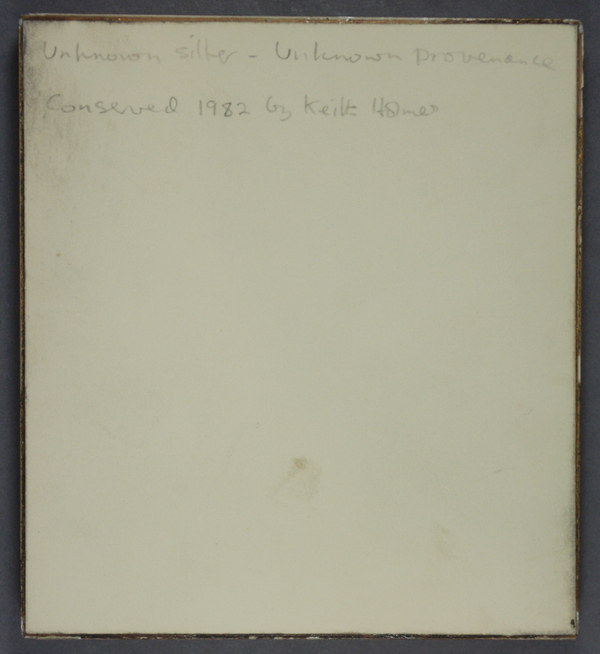 Unknown sitter - Unknown provenance
Conserved 1982 by Keith